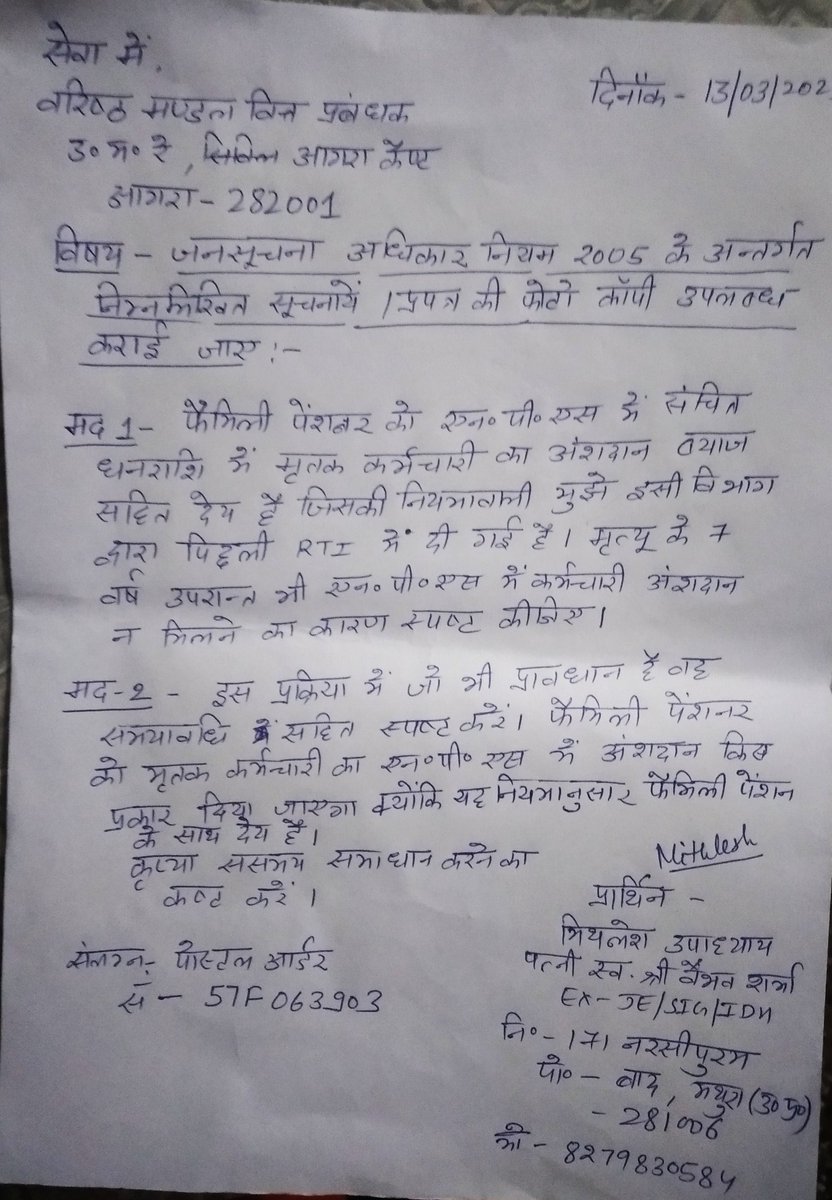 सेवा में,
दिनाँक - 13/03/202
वरिष्ठ मण्डल वित्त प्रबंधक
उ॰ म॰ रे, सिविल आगरा कैण्ट
आगरा - 282001
विषय - जनसूचना अधिकार नियम 2005 के अन्तर्गत
निम्नलिखित सूचनायें / प्रपत्र की फोटो कॉपी उपलब्ध
कराई जाए :-
मद 1 - फैमिली पेंशनर को एन॰ पी॰ एस में संचित
धनराशि में मृतक कर्मचारी का अंशदान ब्याज
सहित देय है जिसकी नियमावली मुझे इसी विभाग
द्वारा पिछली RTI में दी गई है। मृत्यू के 7
वर्ष उपरान्त भी एन॰ पी॰ एस में कर्मचारी अंशदान
न मिलने का कारण स्पष्ट कीजिए।
मद-2 - इस प्रक्रिया में जो भी प्रावधान है वह
समयावधि सहित स्पष्ट करें। फैमिली पेंशनर
को मृतक कर्मचारी का एन॰ पी॰ एस में अंशदान किस
प्रकार दिया जाएगा क्योंकि यह नियमानुसार फैमिली पेंशन
के साथ देय है।
कृप्या ससमय समाधान करने का
कष्ट करें।
Mithlesh
प्रार्थिन -
मिथलेश उपाध्याय
पत्नी स्व. श्री वैभव शर्मा
EX- JE/SIG/IDH
नि॰ - 171 नरसीपुरम
पो॰ - बाद, मथुरा (उ॰ प्र॰)
- 281006
मो - 8279830584
संलग्न :- पोस्टल आर्डर
सं - 57F 063903